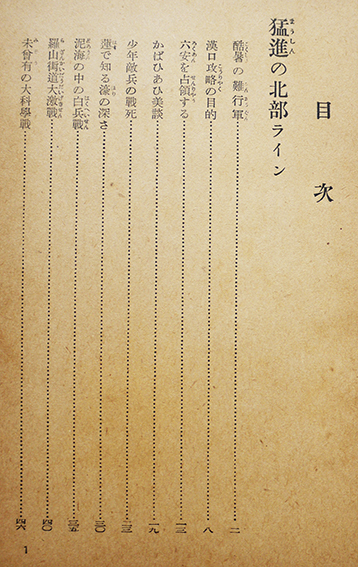 目次
猛進の北部ライン
酷暑の難行軍 二
漢口攻略の目的 八
六安を占領する 一三
かばひあひ美談 一九
少年敵兵の戰死 二三
蓮で知る濠の深さ 三〇
泥海の中の白兵戰 三五
羅山街道大激戰 四〇
未曾有の大科學戰 四六
1